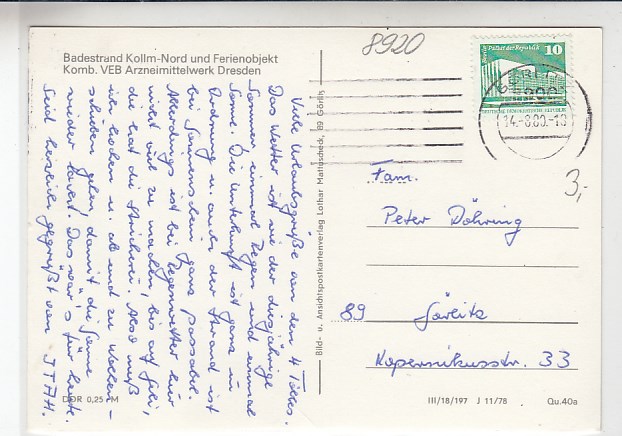 8920
Badestrand Kollm-Nord und Ferienobjekt
Komb. VEB Arzneimittelwerk Dresden
Viele Urlaubsgrüße von den 4
Das Wetter ist wie der diesjährige
Sommer, einmal Regen und einmal
Sonne. Die Unterkunft ist ganz in
Ordnung u. auch der Strand ist
bei Sonnenschein ganz passabel.
Allerdings ist bei Regenwetter hier
nicht viel zu machen, bis auf Gili,
die hat die Strickerei. Also muß
ich kochen u. ab und zu Wolken-
schieben gehen, damit die Sonne
wieder lacht. Das wär's für heute.
Seid herzlich gegrüßt von J.T.A.H.
DDR 0,25 M
Bild- u. Ansichtspostkartenverlag Lothar Mattuscheck, 89 Görlitz
Palast der Republik
10
DEUTSCHE DEMOKRATISCHE REPUBLIK
14.-8.80.-18
3,-
Fam.
Peter Döhring
89 Görlitz
Kopernikusstr. 33
III/18/197 J 11/78 Qu.40a